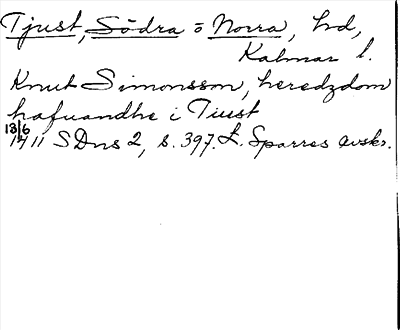 Tjust, Södra o Norra, hd,
Kalmar l.
Knut Simonsson, heredzdom
hafuandhe i Tiust
18/6
1411 SDns 2, s. 397. L. Sparres avskr.